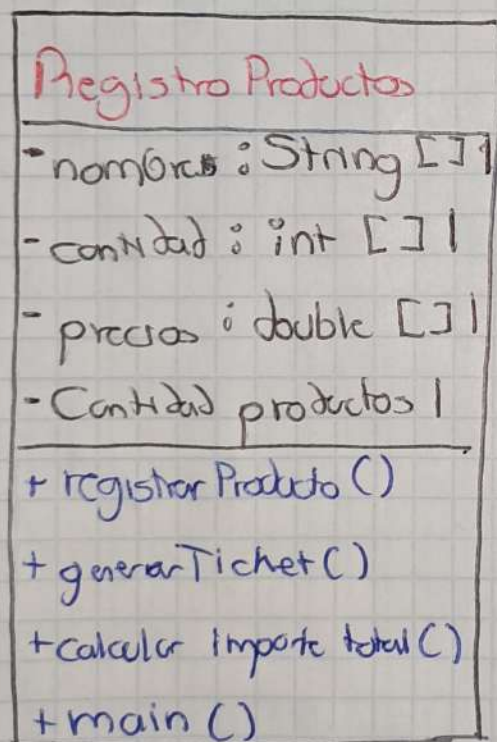 Registro Productos
- nombres : String []
- cantidad : int []
- precios : double []
- Cantidad productos
+ registrar Producto ()
+ generar Ticket ()
+ calcular Importe total ()
+ main ()